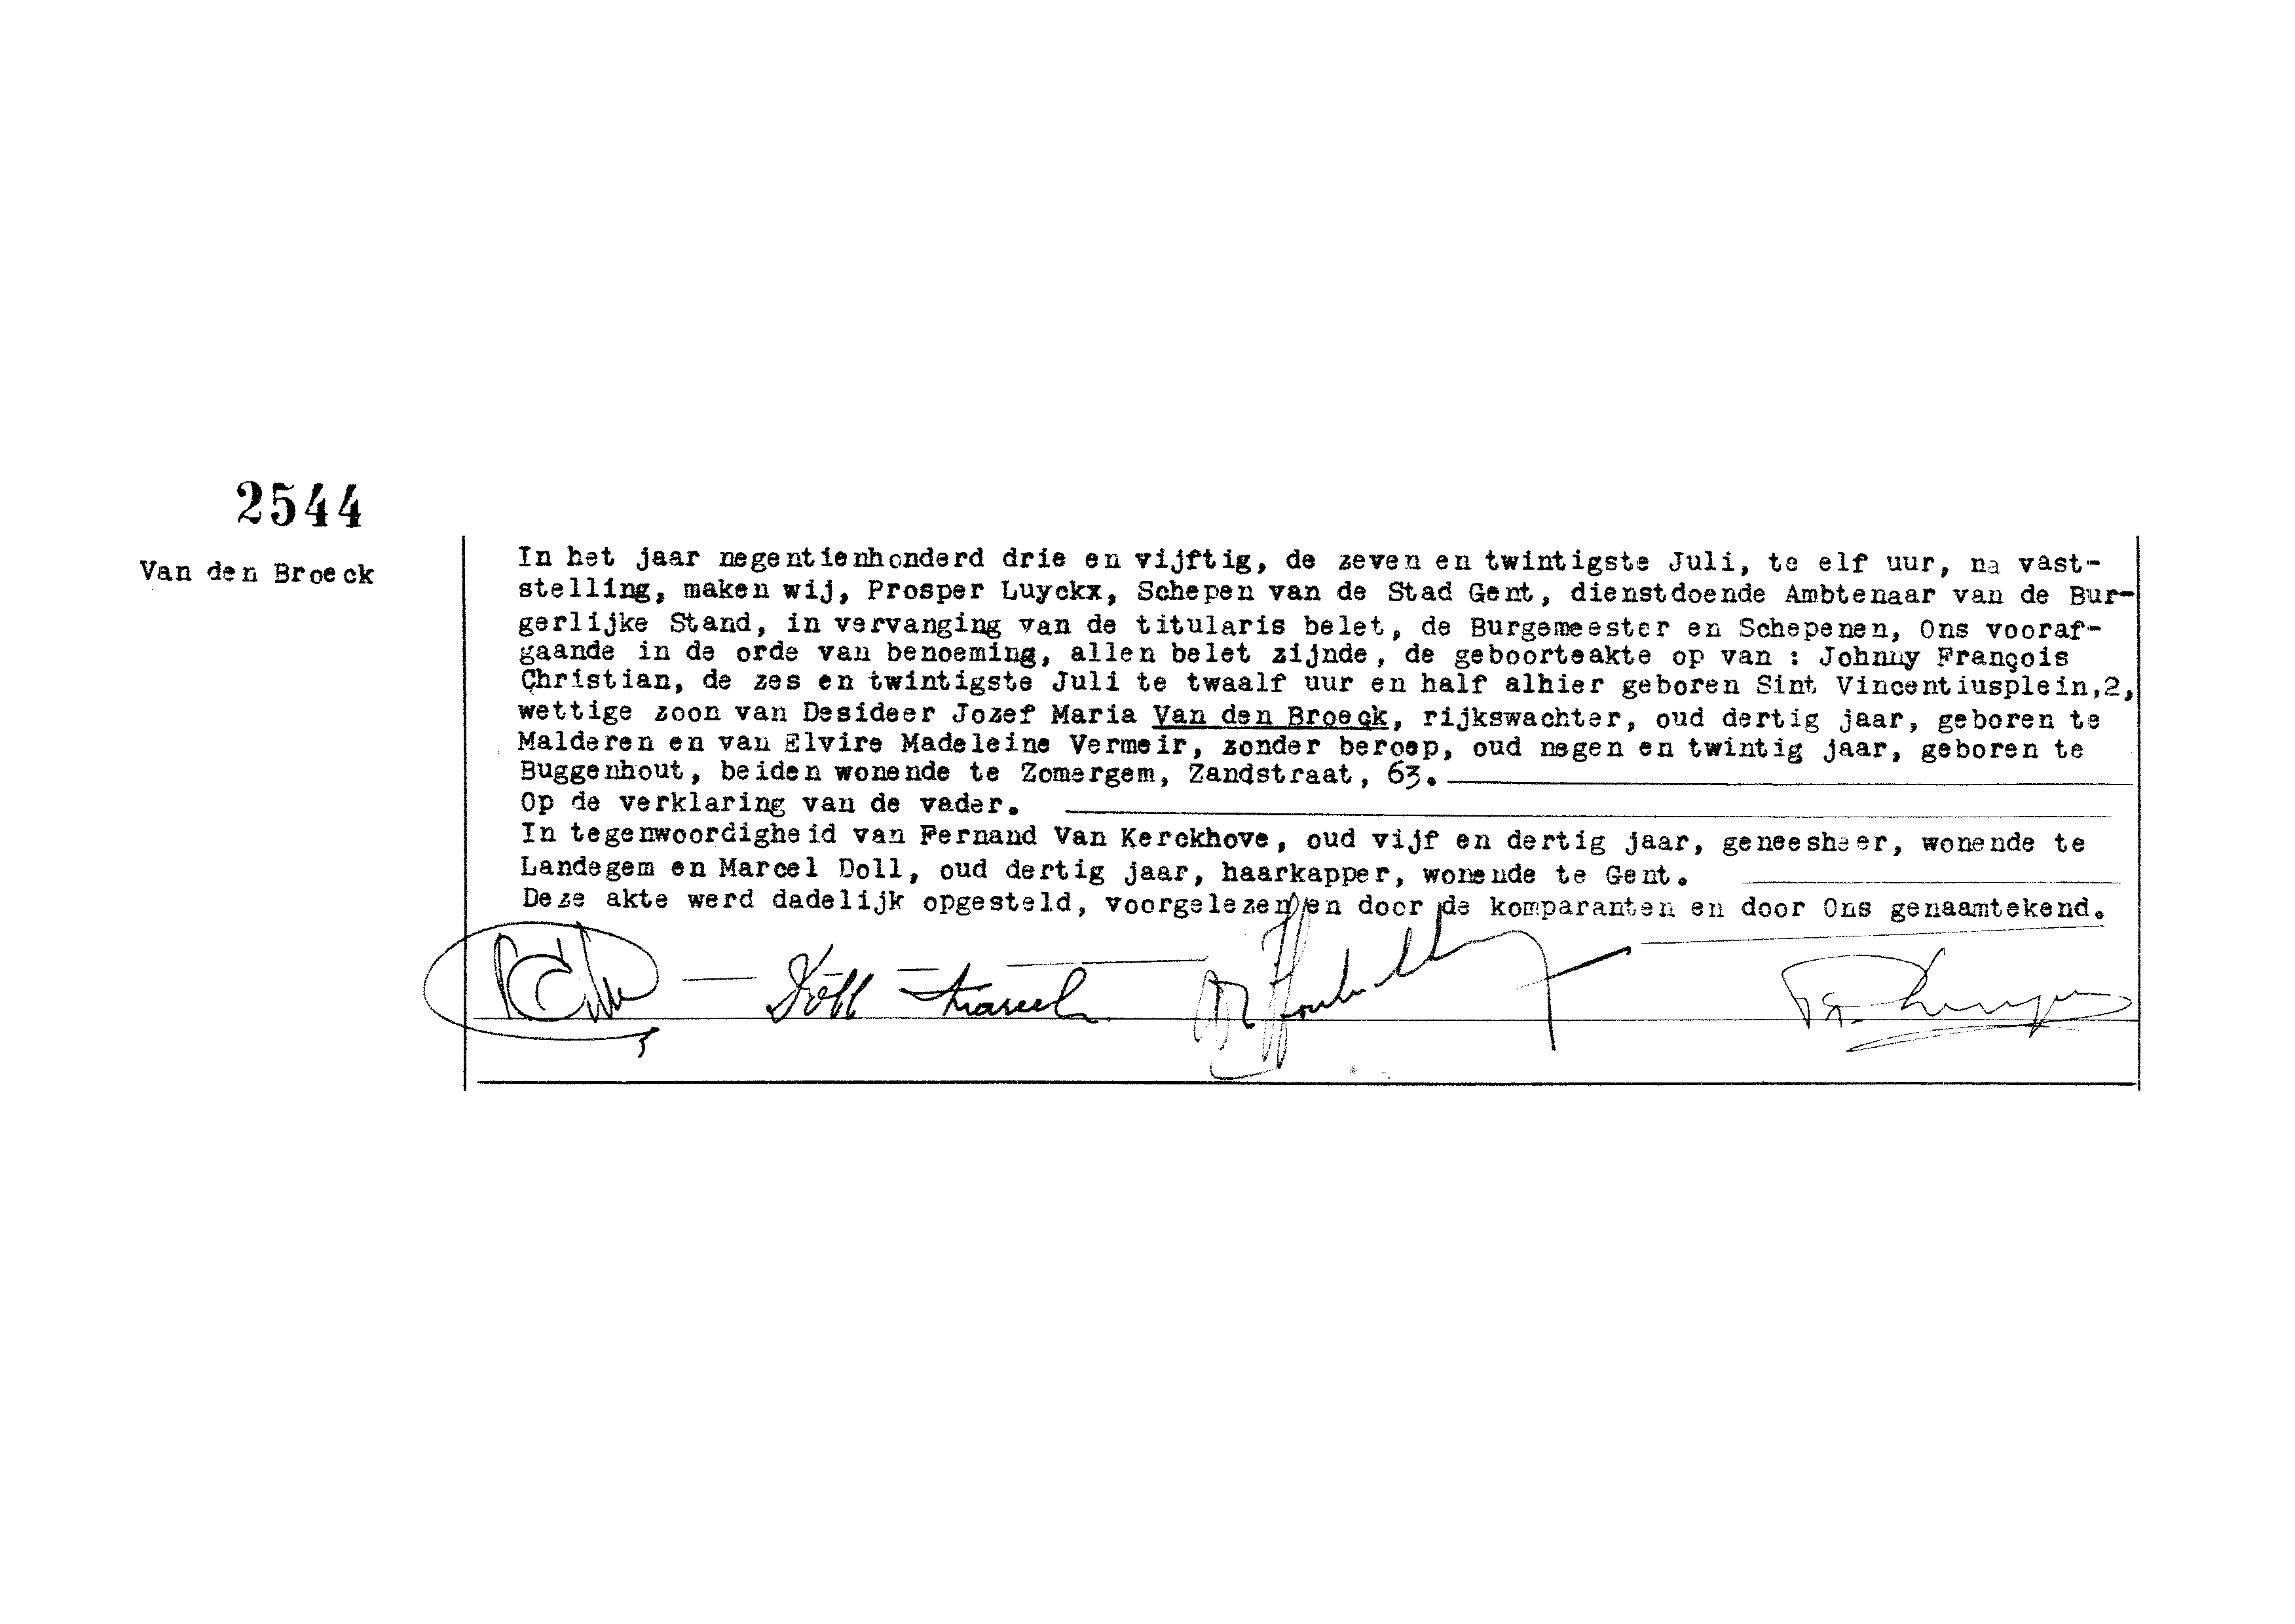 2544
Van den Broeck
In het jaar negentienhonderd drie en vijftig, de zeven en twintigste Juli, te elf uur, na vast-
stelling, maken wij, Prosper Luyckx, Schepen van de Stad Gent, dienstdoende Ambtenaar van de Bur-
gerlijke Stand, in vervanging van de titularis belet, de Burgemeester en Schepenen, Ons vooraf-
gaande in de orde van benoeming, allen belet zijnde, de geboorteakte op van : Johnny François
Christian, de zes en twintigste Juli te twaalf uur en half alhier geboren Sint Vincentiusplein,2,
wettige zoon van Desideer Jozef Maria Van den Broeck, rijkswachter, oud dertig jaar, geboren te
Malderen en van Elvire Madeleine Vermeir, zonder beroep, oud negen en twintig jaar, geboren te
Buggenhout, beiden wonende te Zomergem, Zandstraat, 63.
Op de verklaring van de vader.
In tegenwoordigheid van Fernand Van Kerckhove, oud vijf en dertig jaar, geneesheer, wonende te
Landegem en Marcel Doll, oud dertig jaar, haarkapper, wonende te Gent.
Deze akte werd dadelijk opgesteld, voorgelezen en door de komparanten en door Ons genaamtekend.
Döll Marcel